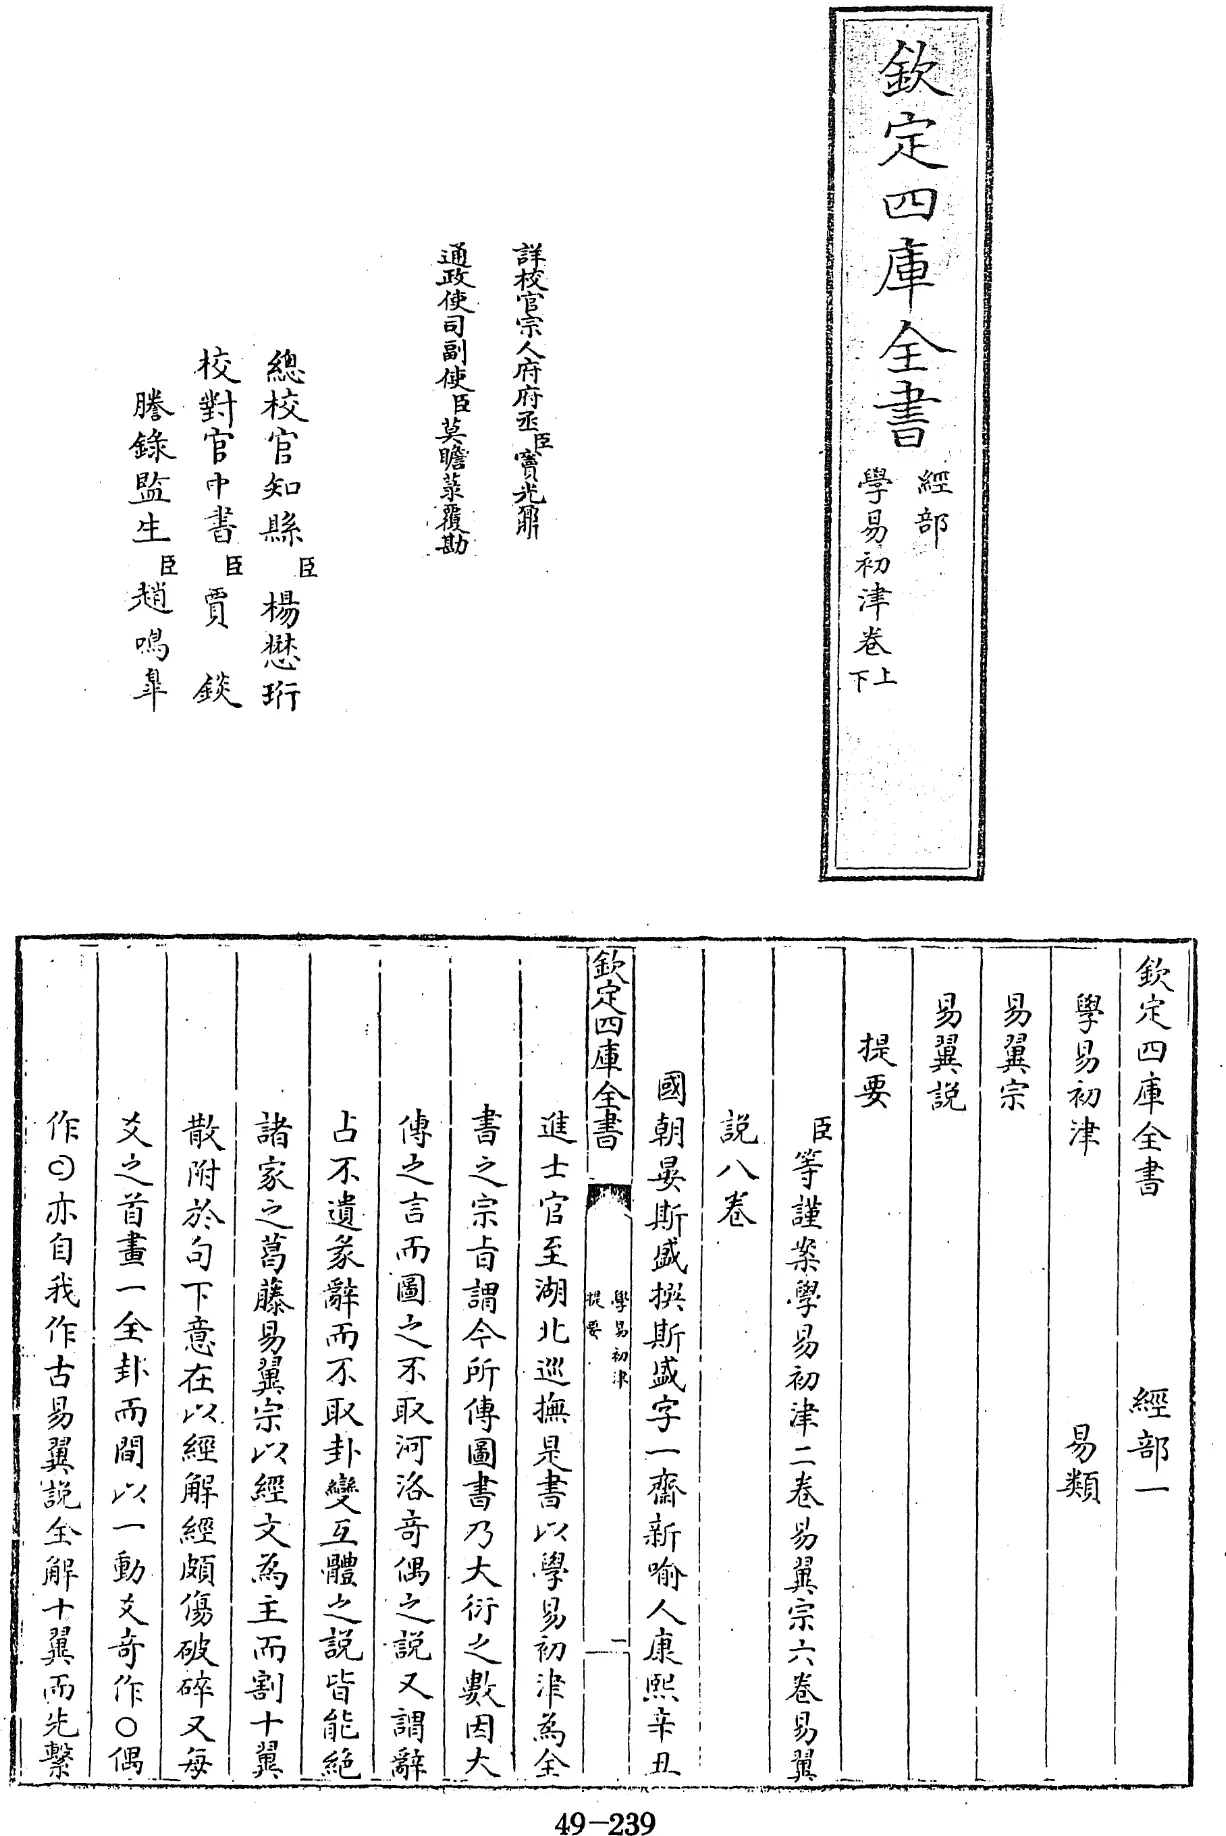 欽定四庫全書
經部
學易初津卷上下
詳校官宗人府府丞臣竇光鼐
通政使司副使臣莫瞻菉覆勘
總校官知縣臣楊懋珩
校對官中書臣賈錟
謄錄監生臣趙鳴臯
欽定四庫全書 經部一
學易初津 易類
易翼宗
易翼説
提要
臣等謹案學易初津二卷易翼宗六卷易翼
説八卷
國朝晏斯盛撰斯盛字一齋新喻人康熙辛丑
欽定四庫全書
學易初津
提要
一
進士官至湖北巡撫是書以學易初津為全
書之宗旨謂今所傳圖書乃大衍之數因大
傳之言而圖之不取河洛奇偶之説又謂辭
占不遺象辭而不取卦變互體之説皆能絶
諸家之葛藤易翼宗以經文為主而割十翼
散附於句下意在以經解經頗傷破碎又每
爻之首畫一全卦而間以一動爻奇作○偶
作亦自我作古易翼説全解十翼而先繫
49-239